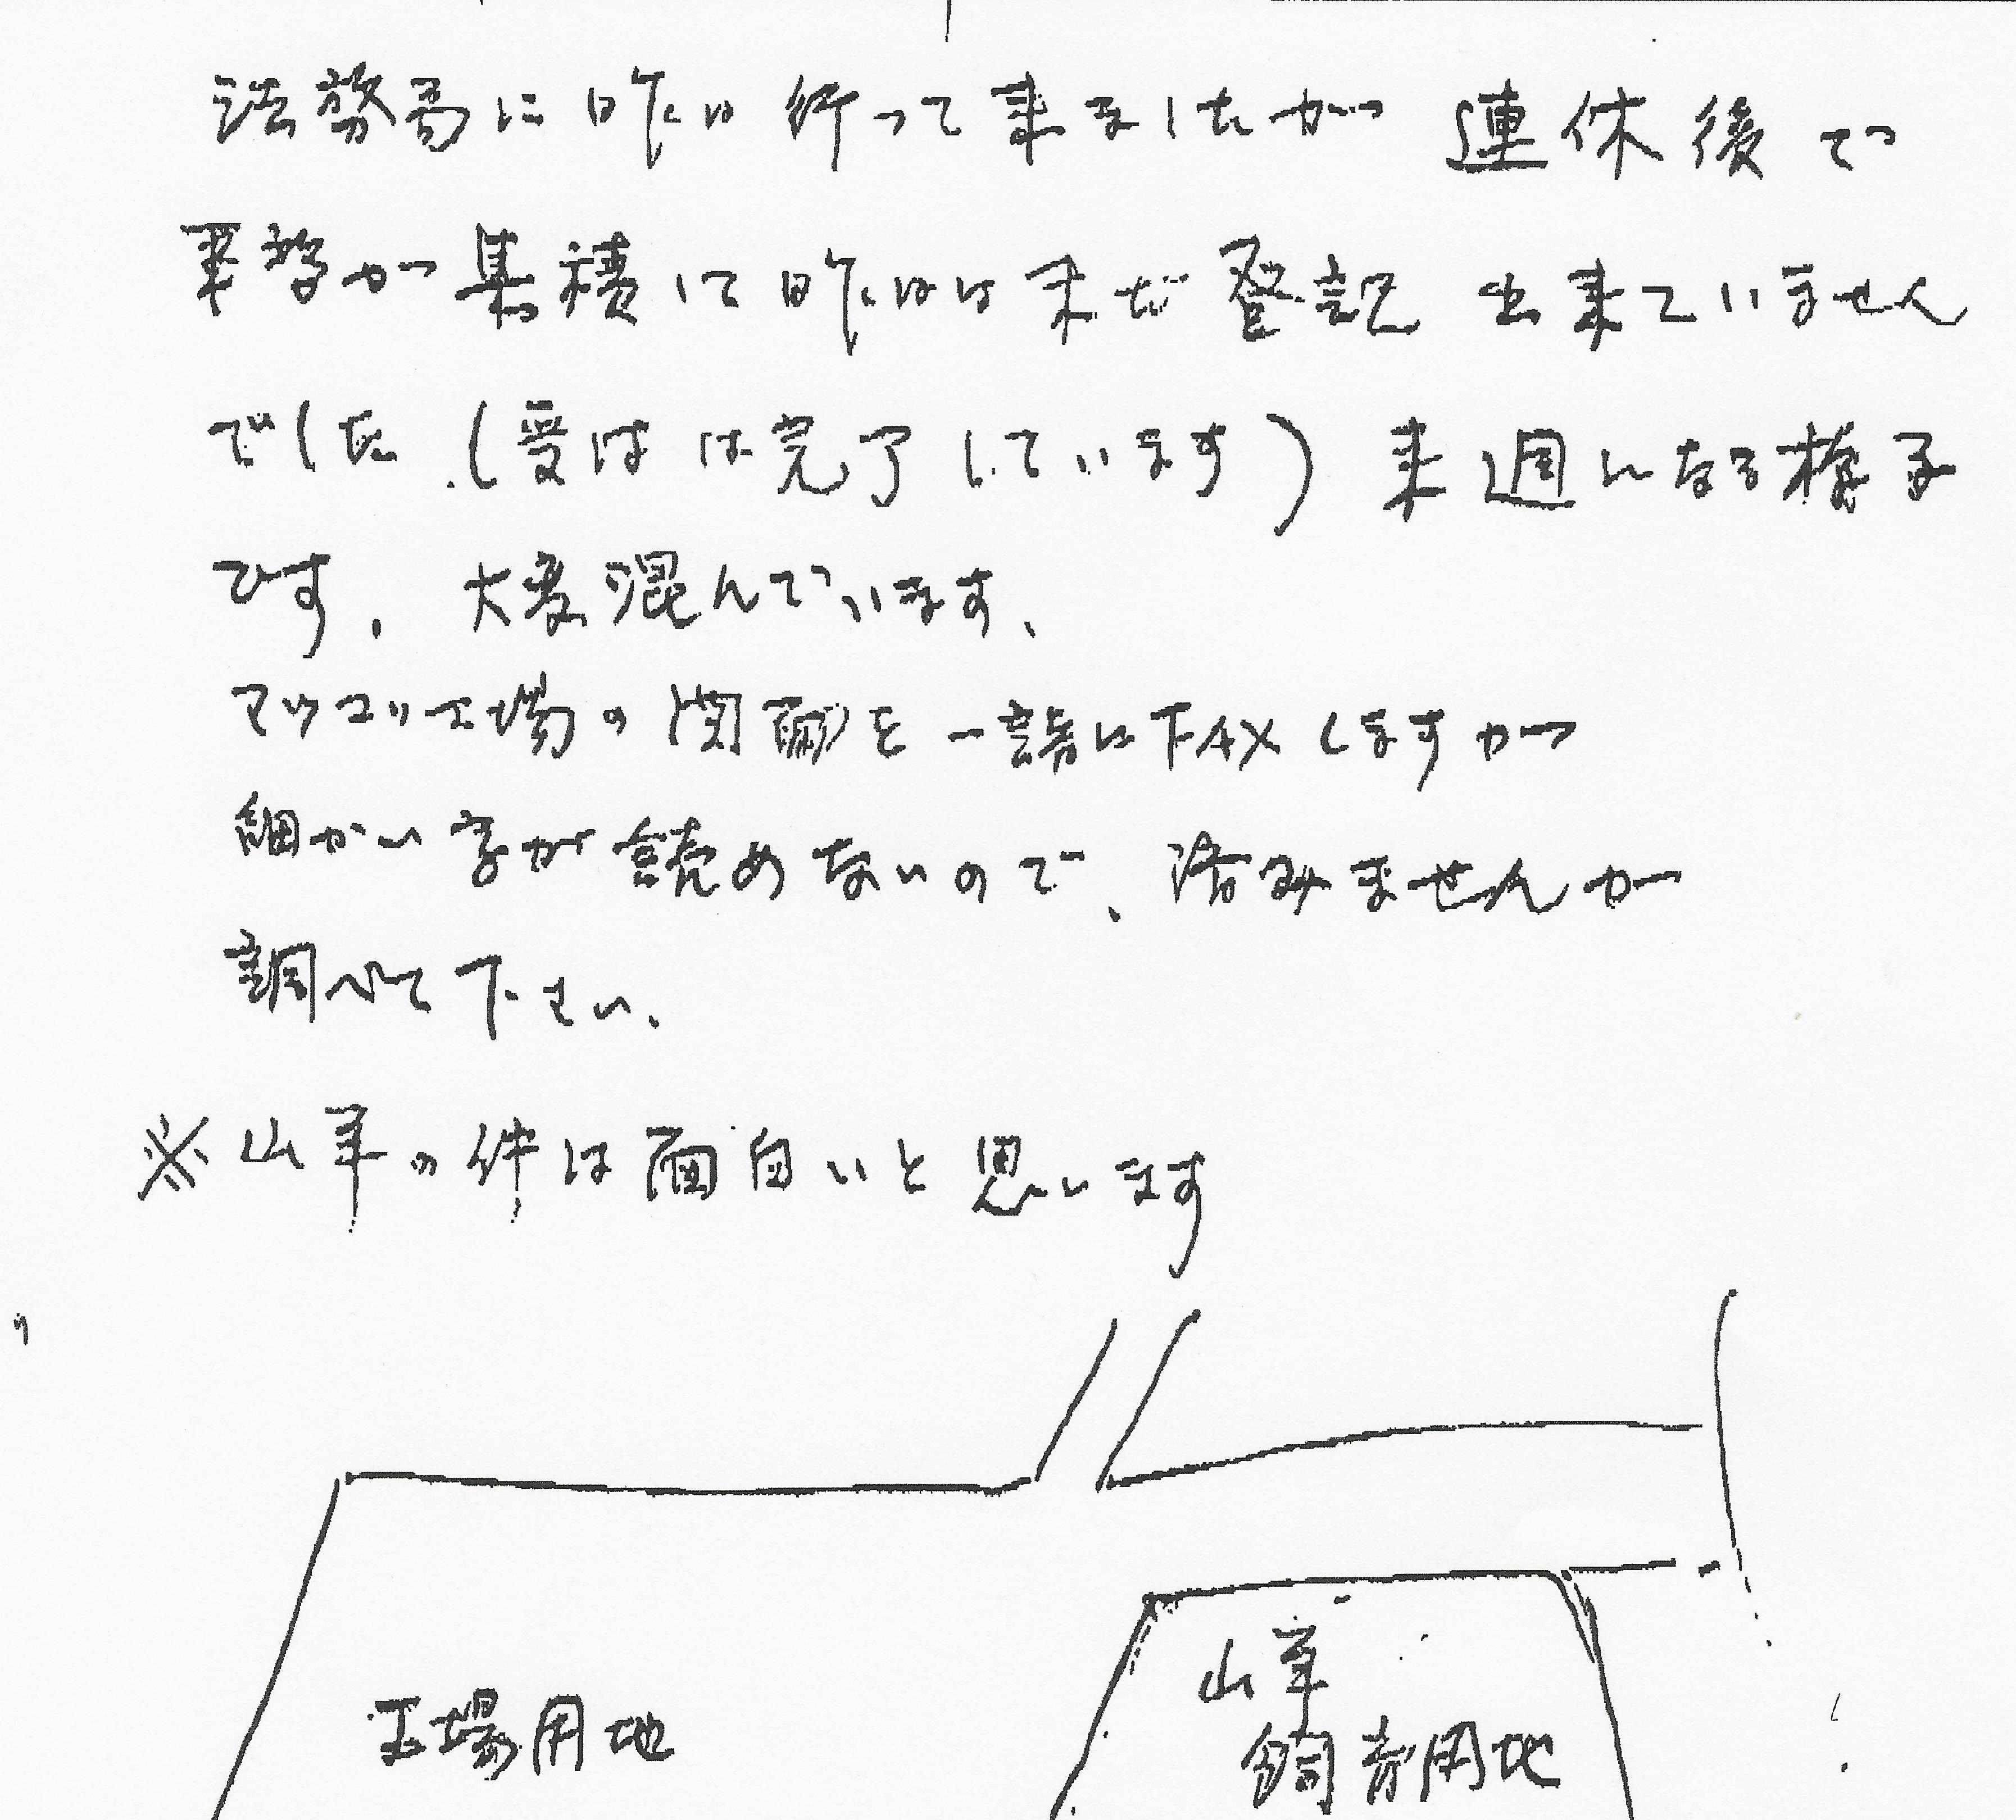 法務局に昨日行って来ましたが 連休後で
事務が集積して昨日は未だ登記出来ていません
でした。(受付は完了しています) 来週になる様子
です。大変混んでいます。
マッコリ工場の図面を一諸にFAXしますが
細かい字が読めないので、済みませんが
調べて下さい。
※山羊の件は面白いと思います
工場用地
山羊
飼育用地